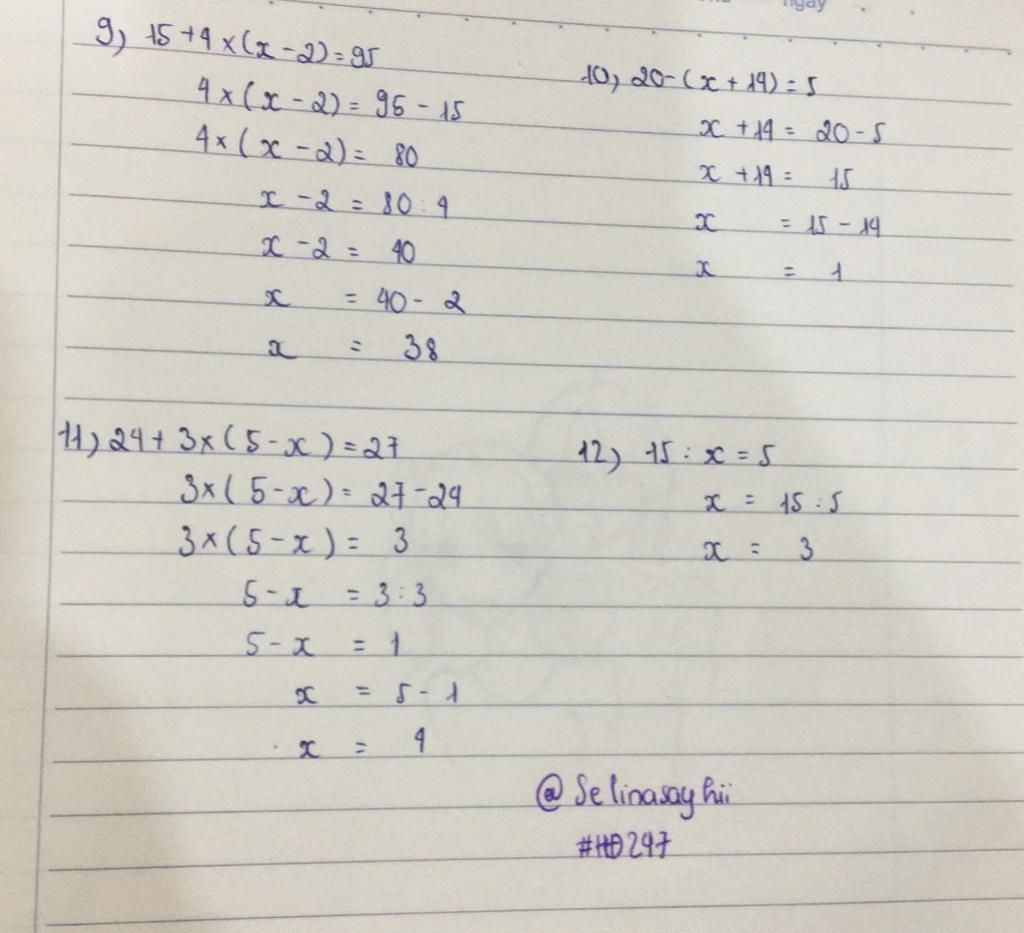 9) 15+4×(x-2)=95
4×(x-2)=95-15
4×(x-2)= 80
x-2 = 80:4
x-2 = 40
x = 40-2
x = 38
10) 20-(x+14)=5
x+14= 20-5
x+14= 15
x = 15-14
x = 1
11) 24+3×(5-x)=27
3×(5-x)=27-24
3×(5-x)= 3
5-x = 3:3
5-x = 1
x = 5-1
x = 4
12) 15:x=5
x = 15:5
x = 3
@Selinasayhii
#HD247